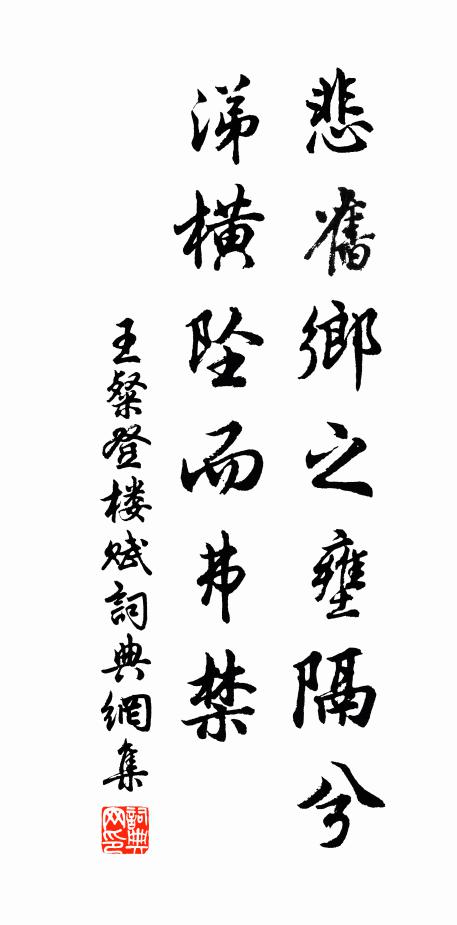 悲舊鄉之壅隔兮
涕橫坠而弗禁
王粲登楼赋詞典網集
詞典网印